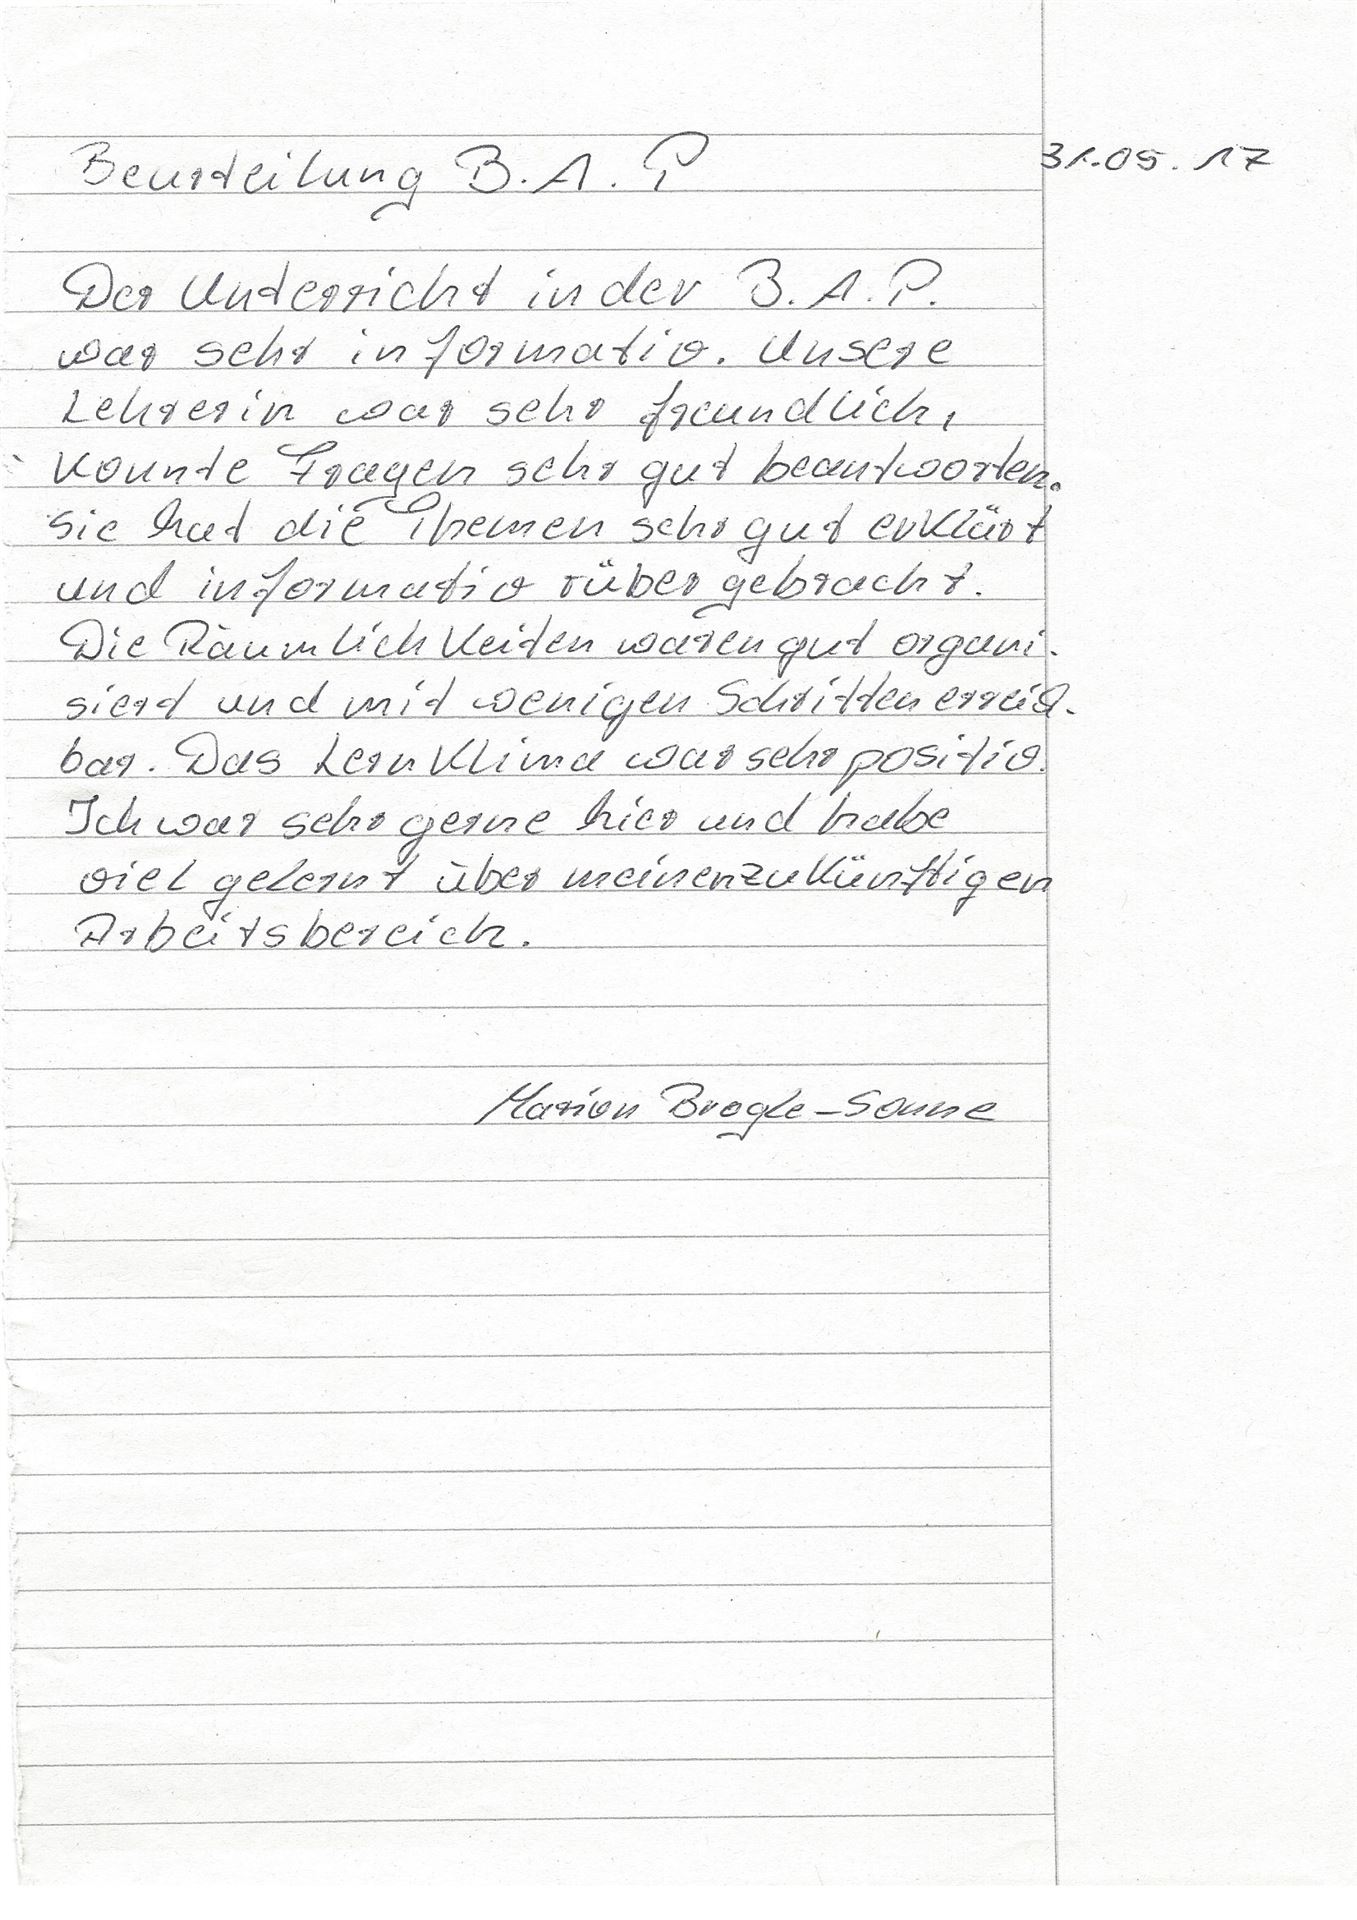 Beurteilung B.A.P
31.05.17
Der Unterricht in der B.A.P.
war sehr informativ. Unsere
Lehrerin war sehr freundlich,
konnte Fragen sehr gut beantworten.
Sie hat die Themen sehr gut erklärt
und informativ rüber gebracht.
Die Räumlichkeiten waren gut organi-
siert und mit wenigen Schritten erreich-
bar. Das Lernklima war sehr positiv.
Ich war sehr gerne hier und habe
viel gelernt über meinen zukünftigen
Arbeitsbereich.
Marion Brogle-Sonne